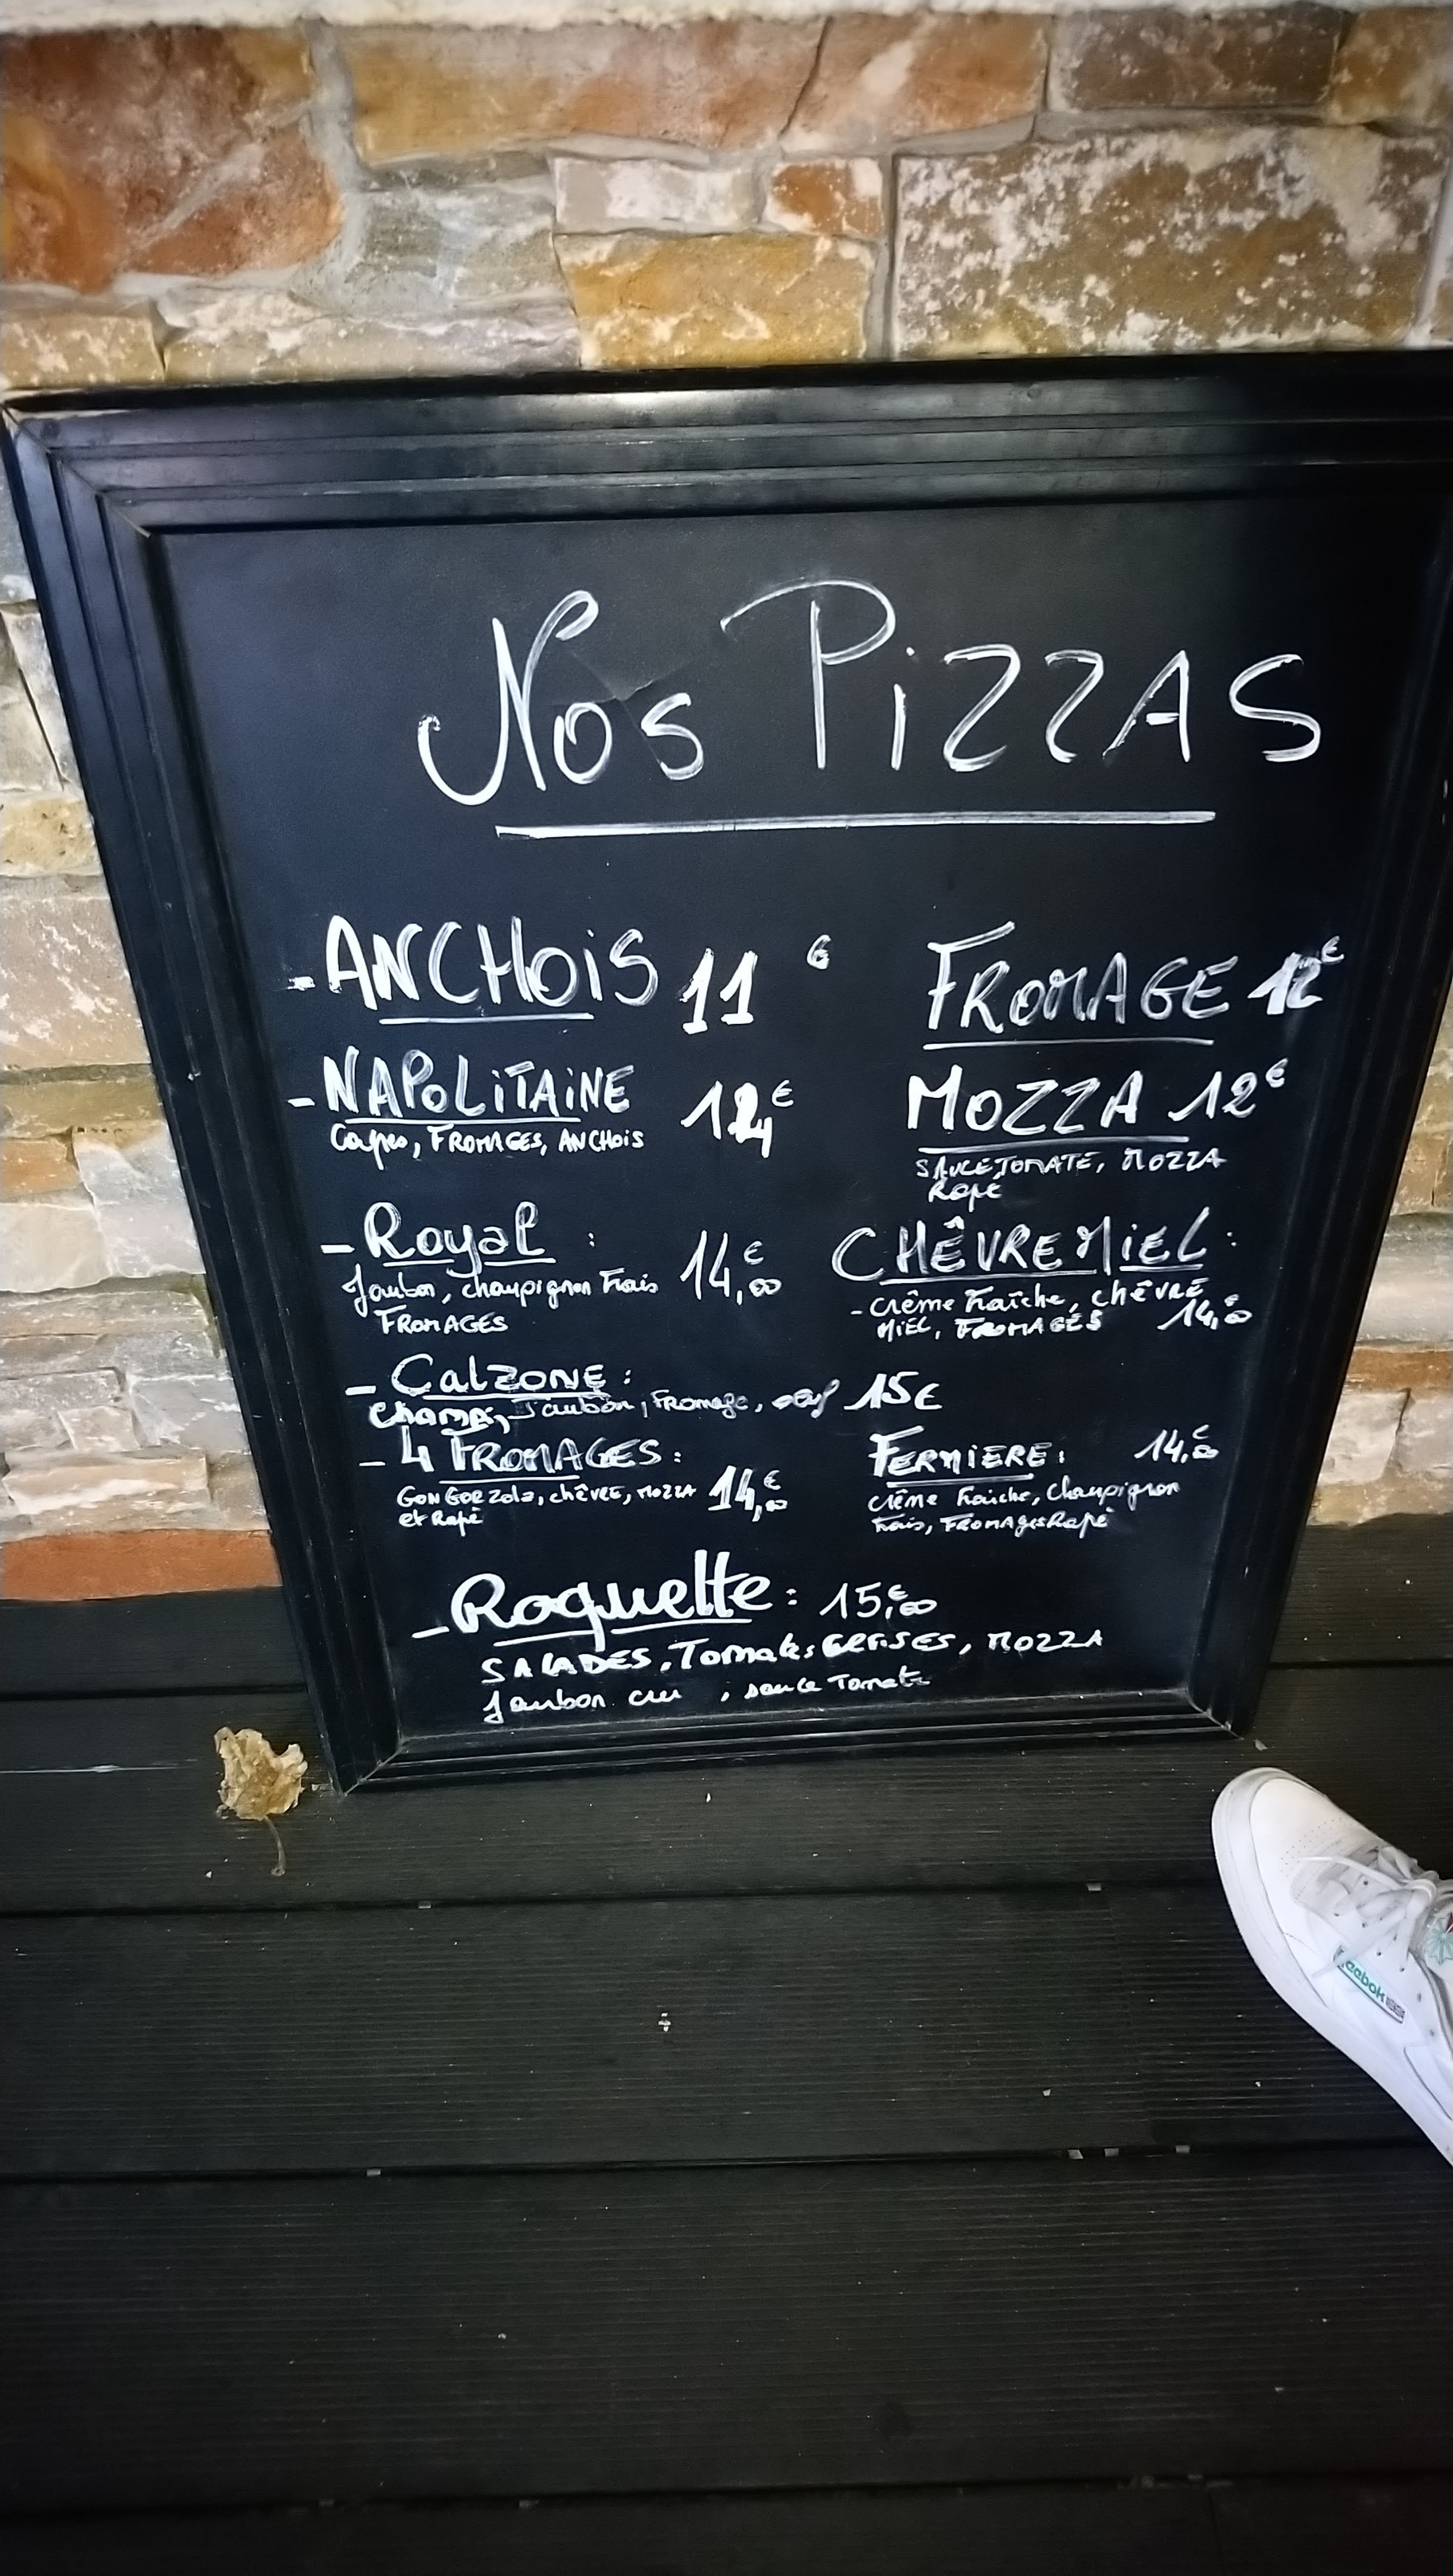 Nos PiZZAS
- ANCHOiS 11 €
- NAPOLiTAiNE €
Capres, FROMAGES, ANCHOIS
- Royal : 14,€00
Jambon, champignon Frais
FROMAGES
- CalZONE :
Champ, Jambon, Fromage, oeuf 15€
- 4 FROMAGES :
GONGORZola, chêvre, MOZZA 14,€00
et Rapé
FROMAGE 12€
MOZZA 12€
SAUCE TOMATE, MOZZA
Rapé
CHÊVRE MiEL :
- crême Fraîche, chêvre
MIEL, FROMAGES 14,€00
FERMIERE : 14,€00
crême Fraîche, Champignon
Frais, FROMAges Rapé
- Roquette : 15,€00
SALADES, Tomates CERISES, MOZZA
Jambon cru , sauce Tomate
Reebok